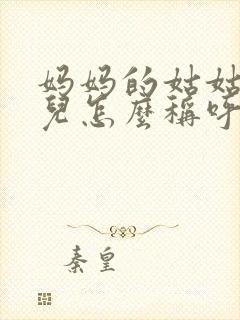 妈妈的姑姑
兒怎麼稱呼
秦皇